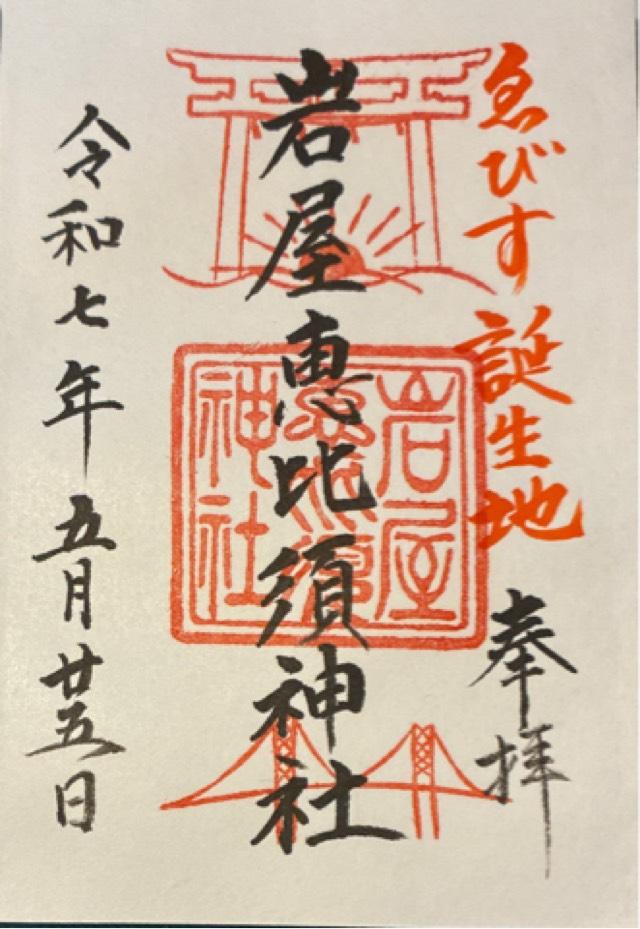 ゑびす誕生地
奉拝
岩屋恵比須神社
岩屋
恵比須
神社
令和七年五月廿五日